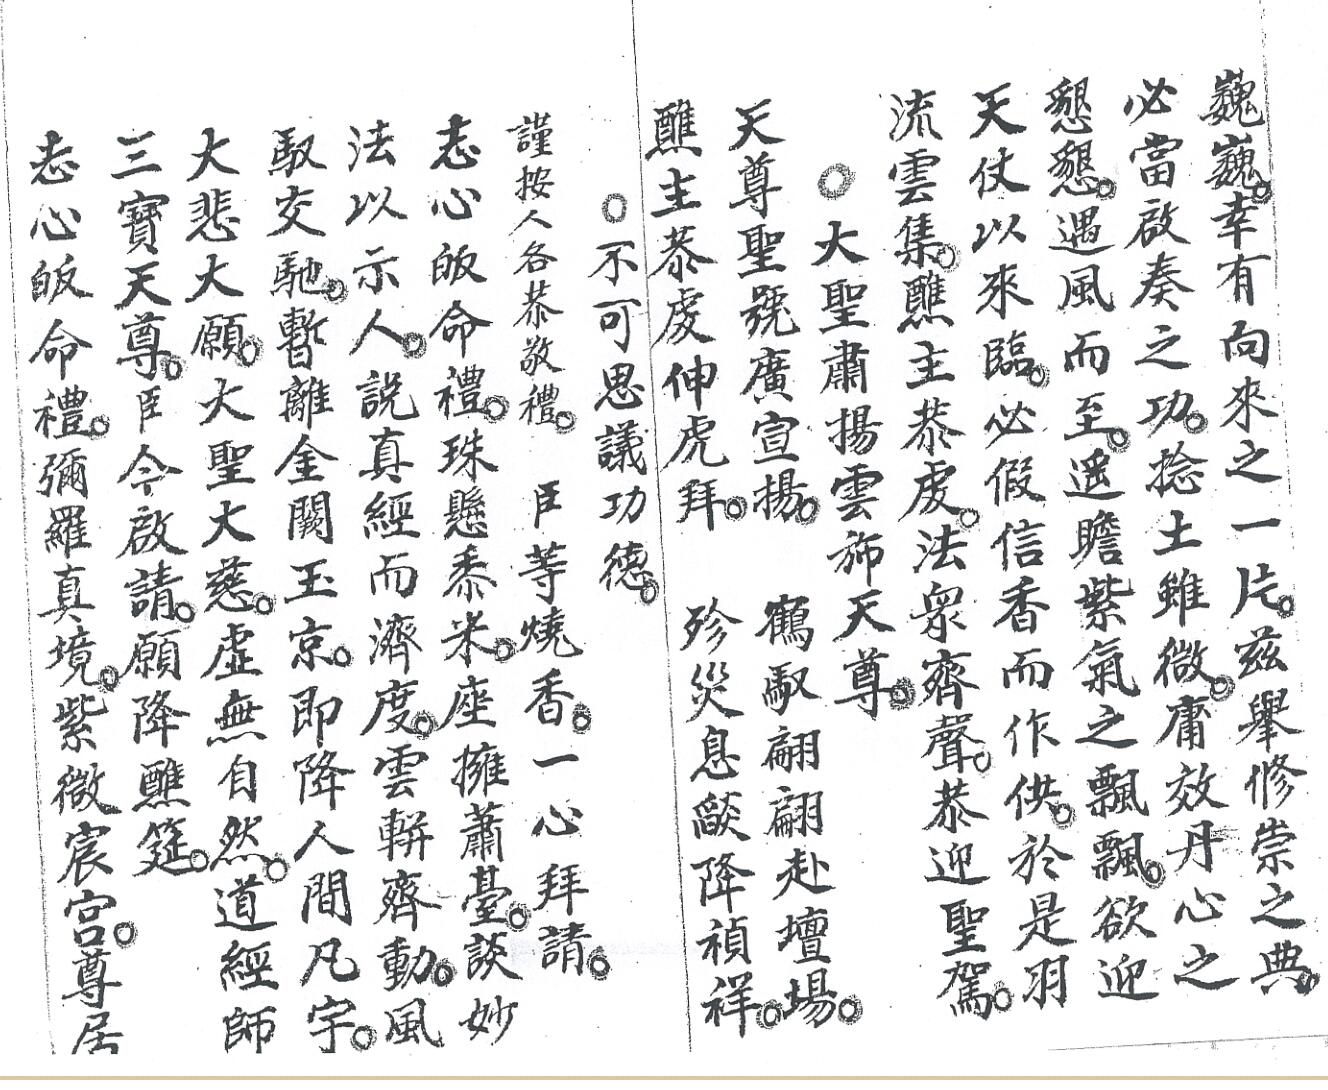 巍巍。幸有向來之一片。茲舉修崇之典。
必當啟奏之功。捻土雖微。庸效丹心之
懇懇。遇風而至。遥瞻紫氣之飄飄。欲迎
天仗以來臨。必假信香而作供。於是羽
流雲集。醮主恭虔。法衆齊聲。恭迎聖駕。
○大聖肅揚雲斾天尊。
天尊聖號廣宣揚。　鶴馭翩翩赴壇場。
醮主恭虔伸虎拜。　殄災息燄降禎祥。
○不可思議功德。
謹按人各恭敬禮。　臣等燒香。一心拜請。
志心皈命禮。珠懸黍米。座擁蕭臺。談妙
法以示人。説真經而濟度。雲輧齊動。風
馭交馳。暫離金闕玉京。即降人間凡宇。
大悲大願。大聖大慈。虛無自然。道經師
三寶天尊。臣今啟請。願降醮筵。
志心皈命禮。彌羅真境。紫微宸宮。尊居